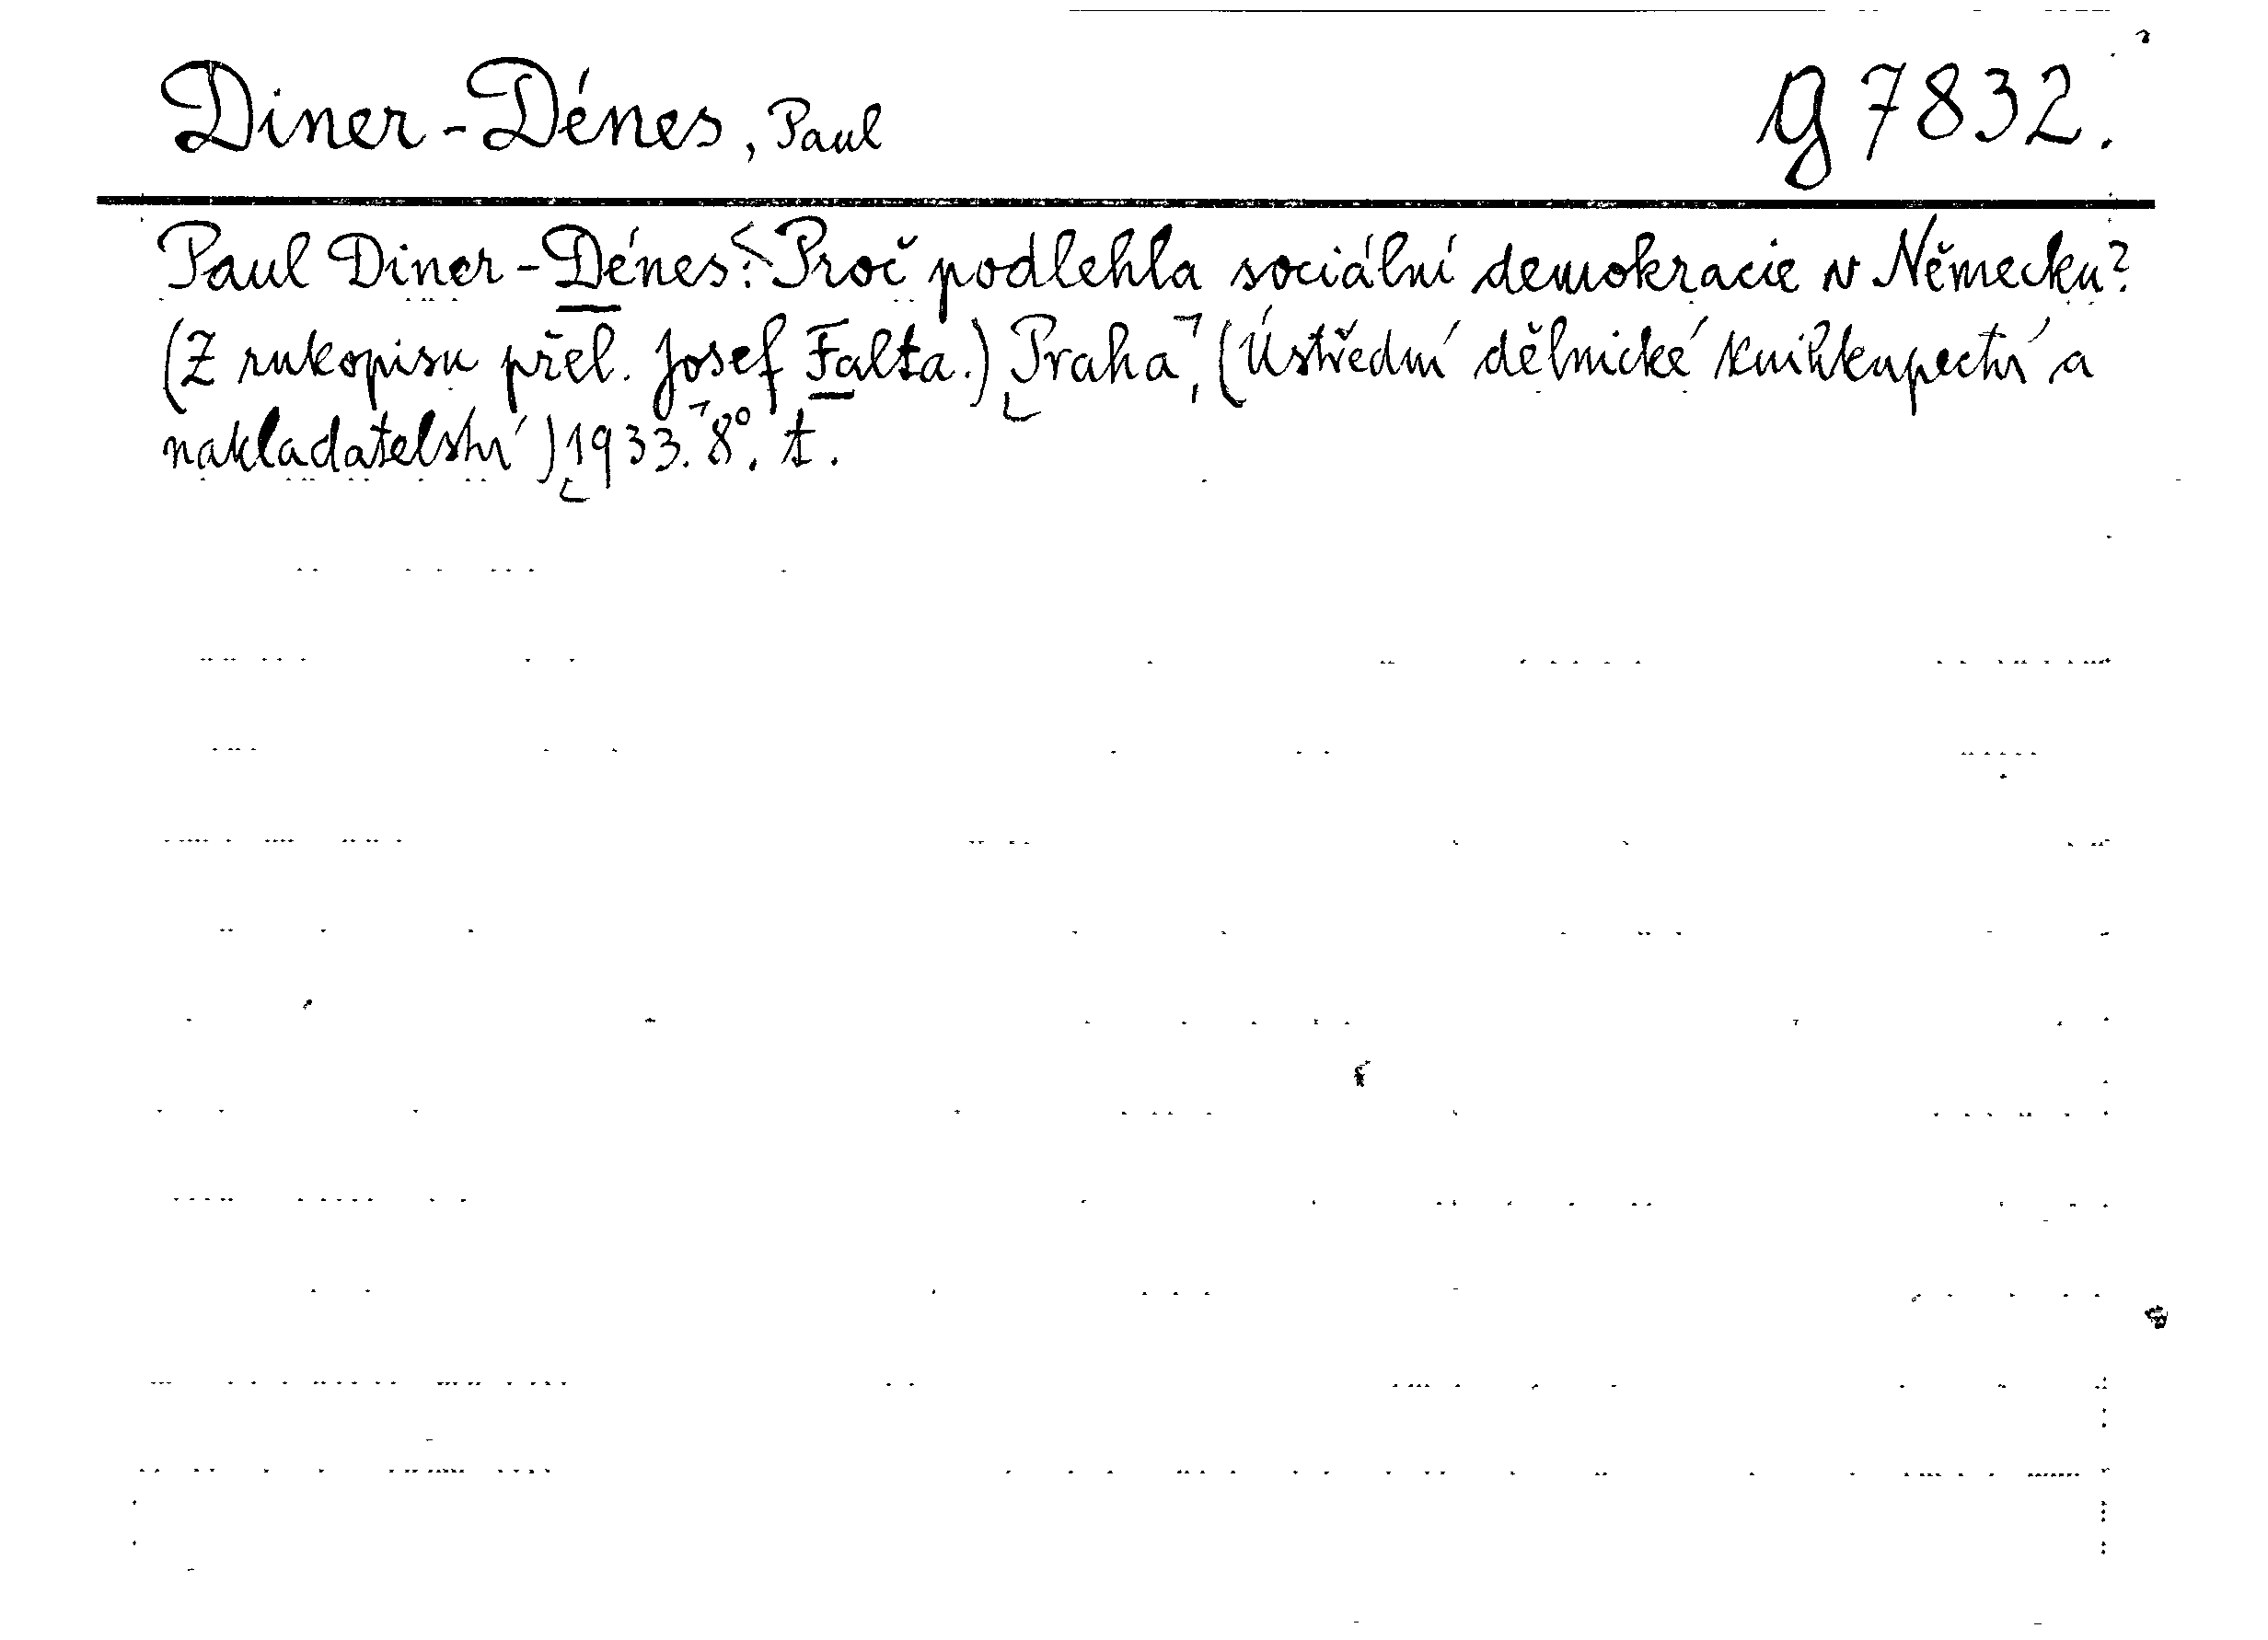 Diner-Dénes, Paul
g 7832.
Paul Diner-Dénes: Proč podlehla sociální demokracie v Německu?
(Z rukopisu přel. Josef Falta.) Praha, (Ústřední dělnické knihkupectví a
nakladatelství) 1933. 8°. t.